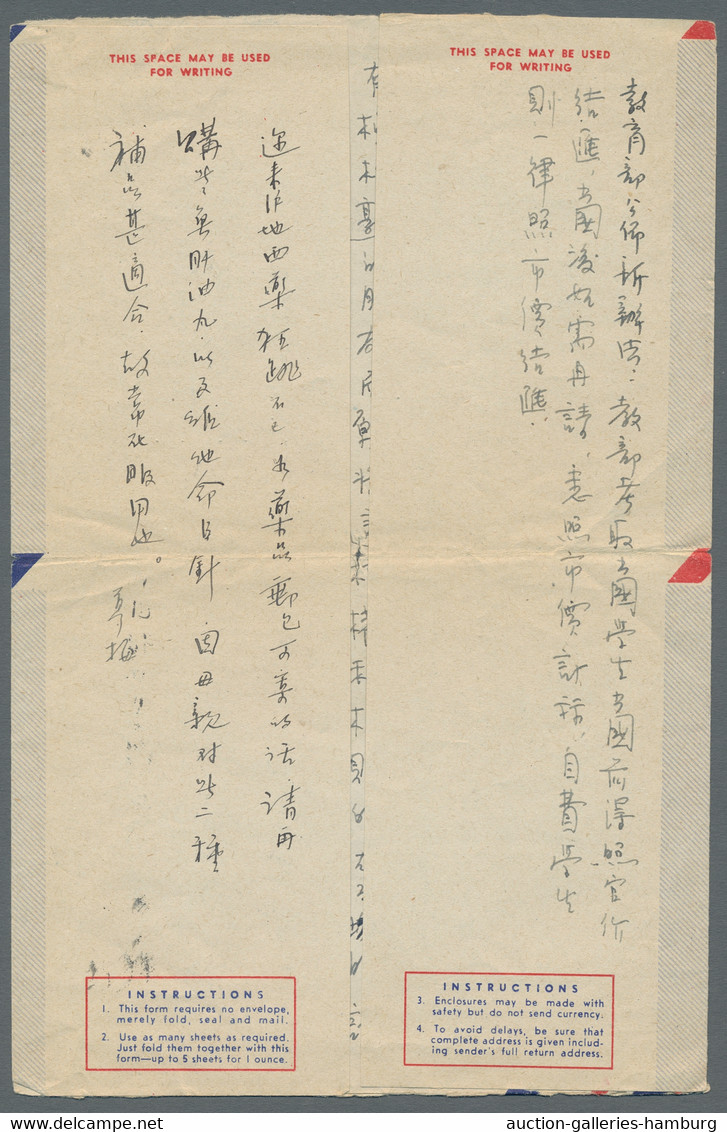 THIS SPACE MAY BE USED
FOR WRITING
THIS SPACE MAY BE USED
FOR WRITING
教育部公佈新辦法：教部考取出國學生出國前得照官价
結匯，出國後如需再請，悉照市價計算，自費學生
則一律照市價結匯。
近來此地西藥狂跳不已，如藥品郵包可寄的話，請再
購些魚肝油丸，以及維他命B針，因母親對此二種
補品甚適合，故常在服用也。
INSTRUCTIONS
1. This form requires no envelope,
merely fold, seal and mail.
2. Use as many sheets as required.
Just fold them together with this
form—up to 5 sheets for 1 ounce.
INSTRUCTIONS
3. Enclosures may be made with
safety but do not send currency.
4. To avoid delays, be sure that
complete address is given includ-
ing sender's full return address.
auction-galleries-hamburg